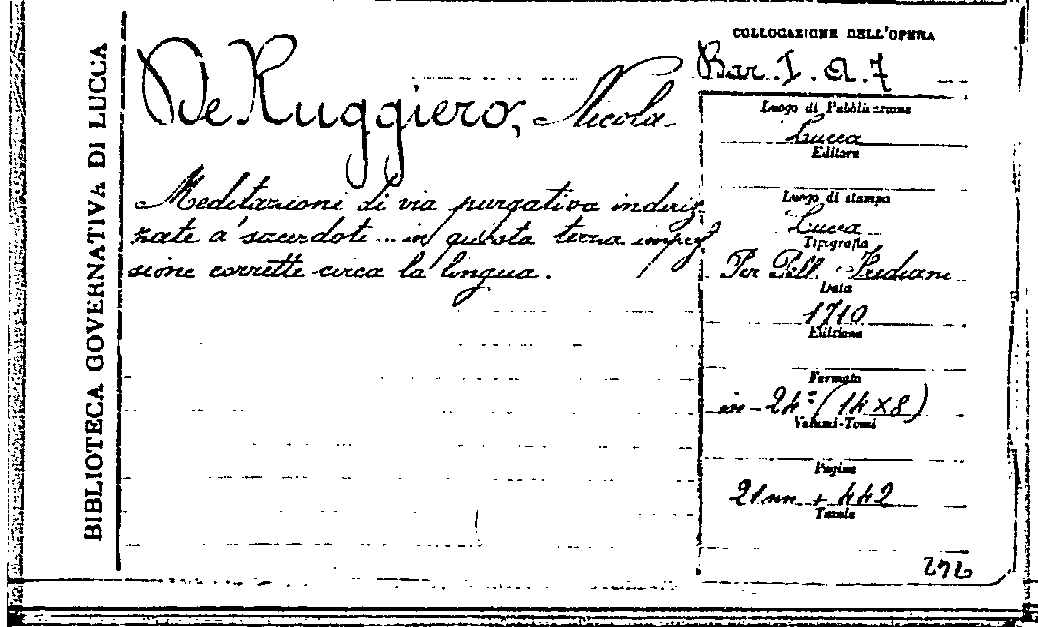 BIBLIOTECA GOVERNATIVA DI LUCCA
De Ruggiero, Nicola
Meditazioni di via purgativa indiriz
zate a' sacerdoti... in questa terza impres
sione corrette circa la lingua.
COLLOCAZIONE DELL'OPERA
Bar. I. a. 7
Luogo di Pubblicazione
Lucca
Editore
Luogo di stampa
Lucca
Tipografia
Per Pell. Frediani
Data
1710
Edizione
Formato
in-24° (14x8)
Volumi-Tomi
Pagine
21nn + 442
Tavole